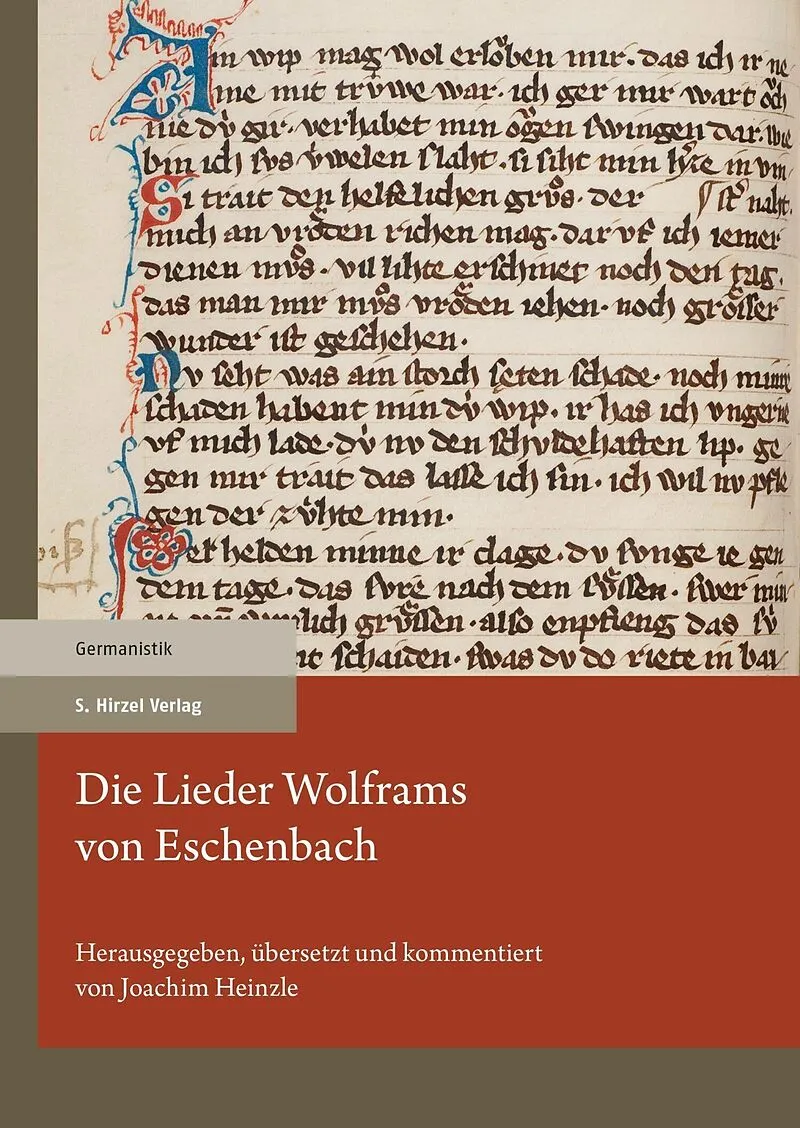 Ain wip mag wol erlǒben mir. das ich ir ne
me mit trv̊we war. ich ger mir wart och
nie dv̍ gir. verhabet min ǒgen swingen dar. wie
bin ich svs v̍welen slaht. si siht min h̍ze in vin
Si trait den helflichen grv̊s. der st̍ naht.
mich an vrǒden richen mag. dar vf ich iemer
dienen mv̊s. vil lihte erschinet noch den tag.
das man mir mv̊s vrǒden iehen. noch grǒsser
wunder ist geschehen.
Nv seht was ain storch seten schade. noch minne
schaden habent min dv̍ wip. ir has ich vngerne
vf mich lade. dv̍ nv den schvldehaften lip. ge
gen mir trait das lasse ich sin. ich wil nv pfle
gen der zv̍hte min.
Der helden minne ir clage. dv svnge ie gen
dem tage. das svre nach dem sv̊ssen. swer min
lich grv̊ssen. also enpfieng das sv̍
schaiden. swas dv do riete in bai
Germanistik
S. Hirzel Verlag
Die Lieder Wolframs
von Eschenbach
Herausgegeben, übersetzt und kommentiert
von Joachim Heinzle